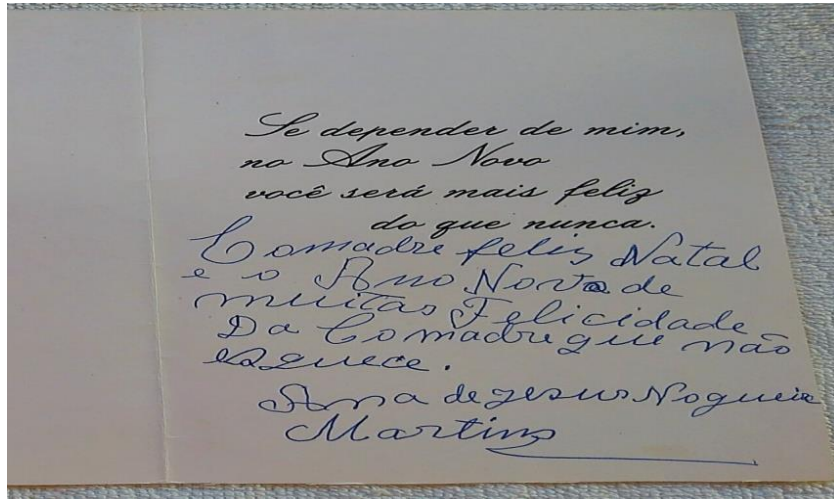 Se depender de mim,
no Ano Novo
você será mais feliz
do que nunca.
Comadre feliz Natal
e o Ano Novo de
muitas Felicidade
Da Comadre que não
esquece.
Ana de Jesus Nogueira
Martins